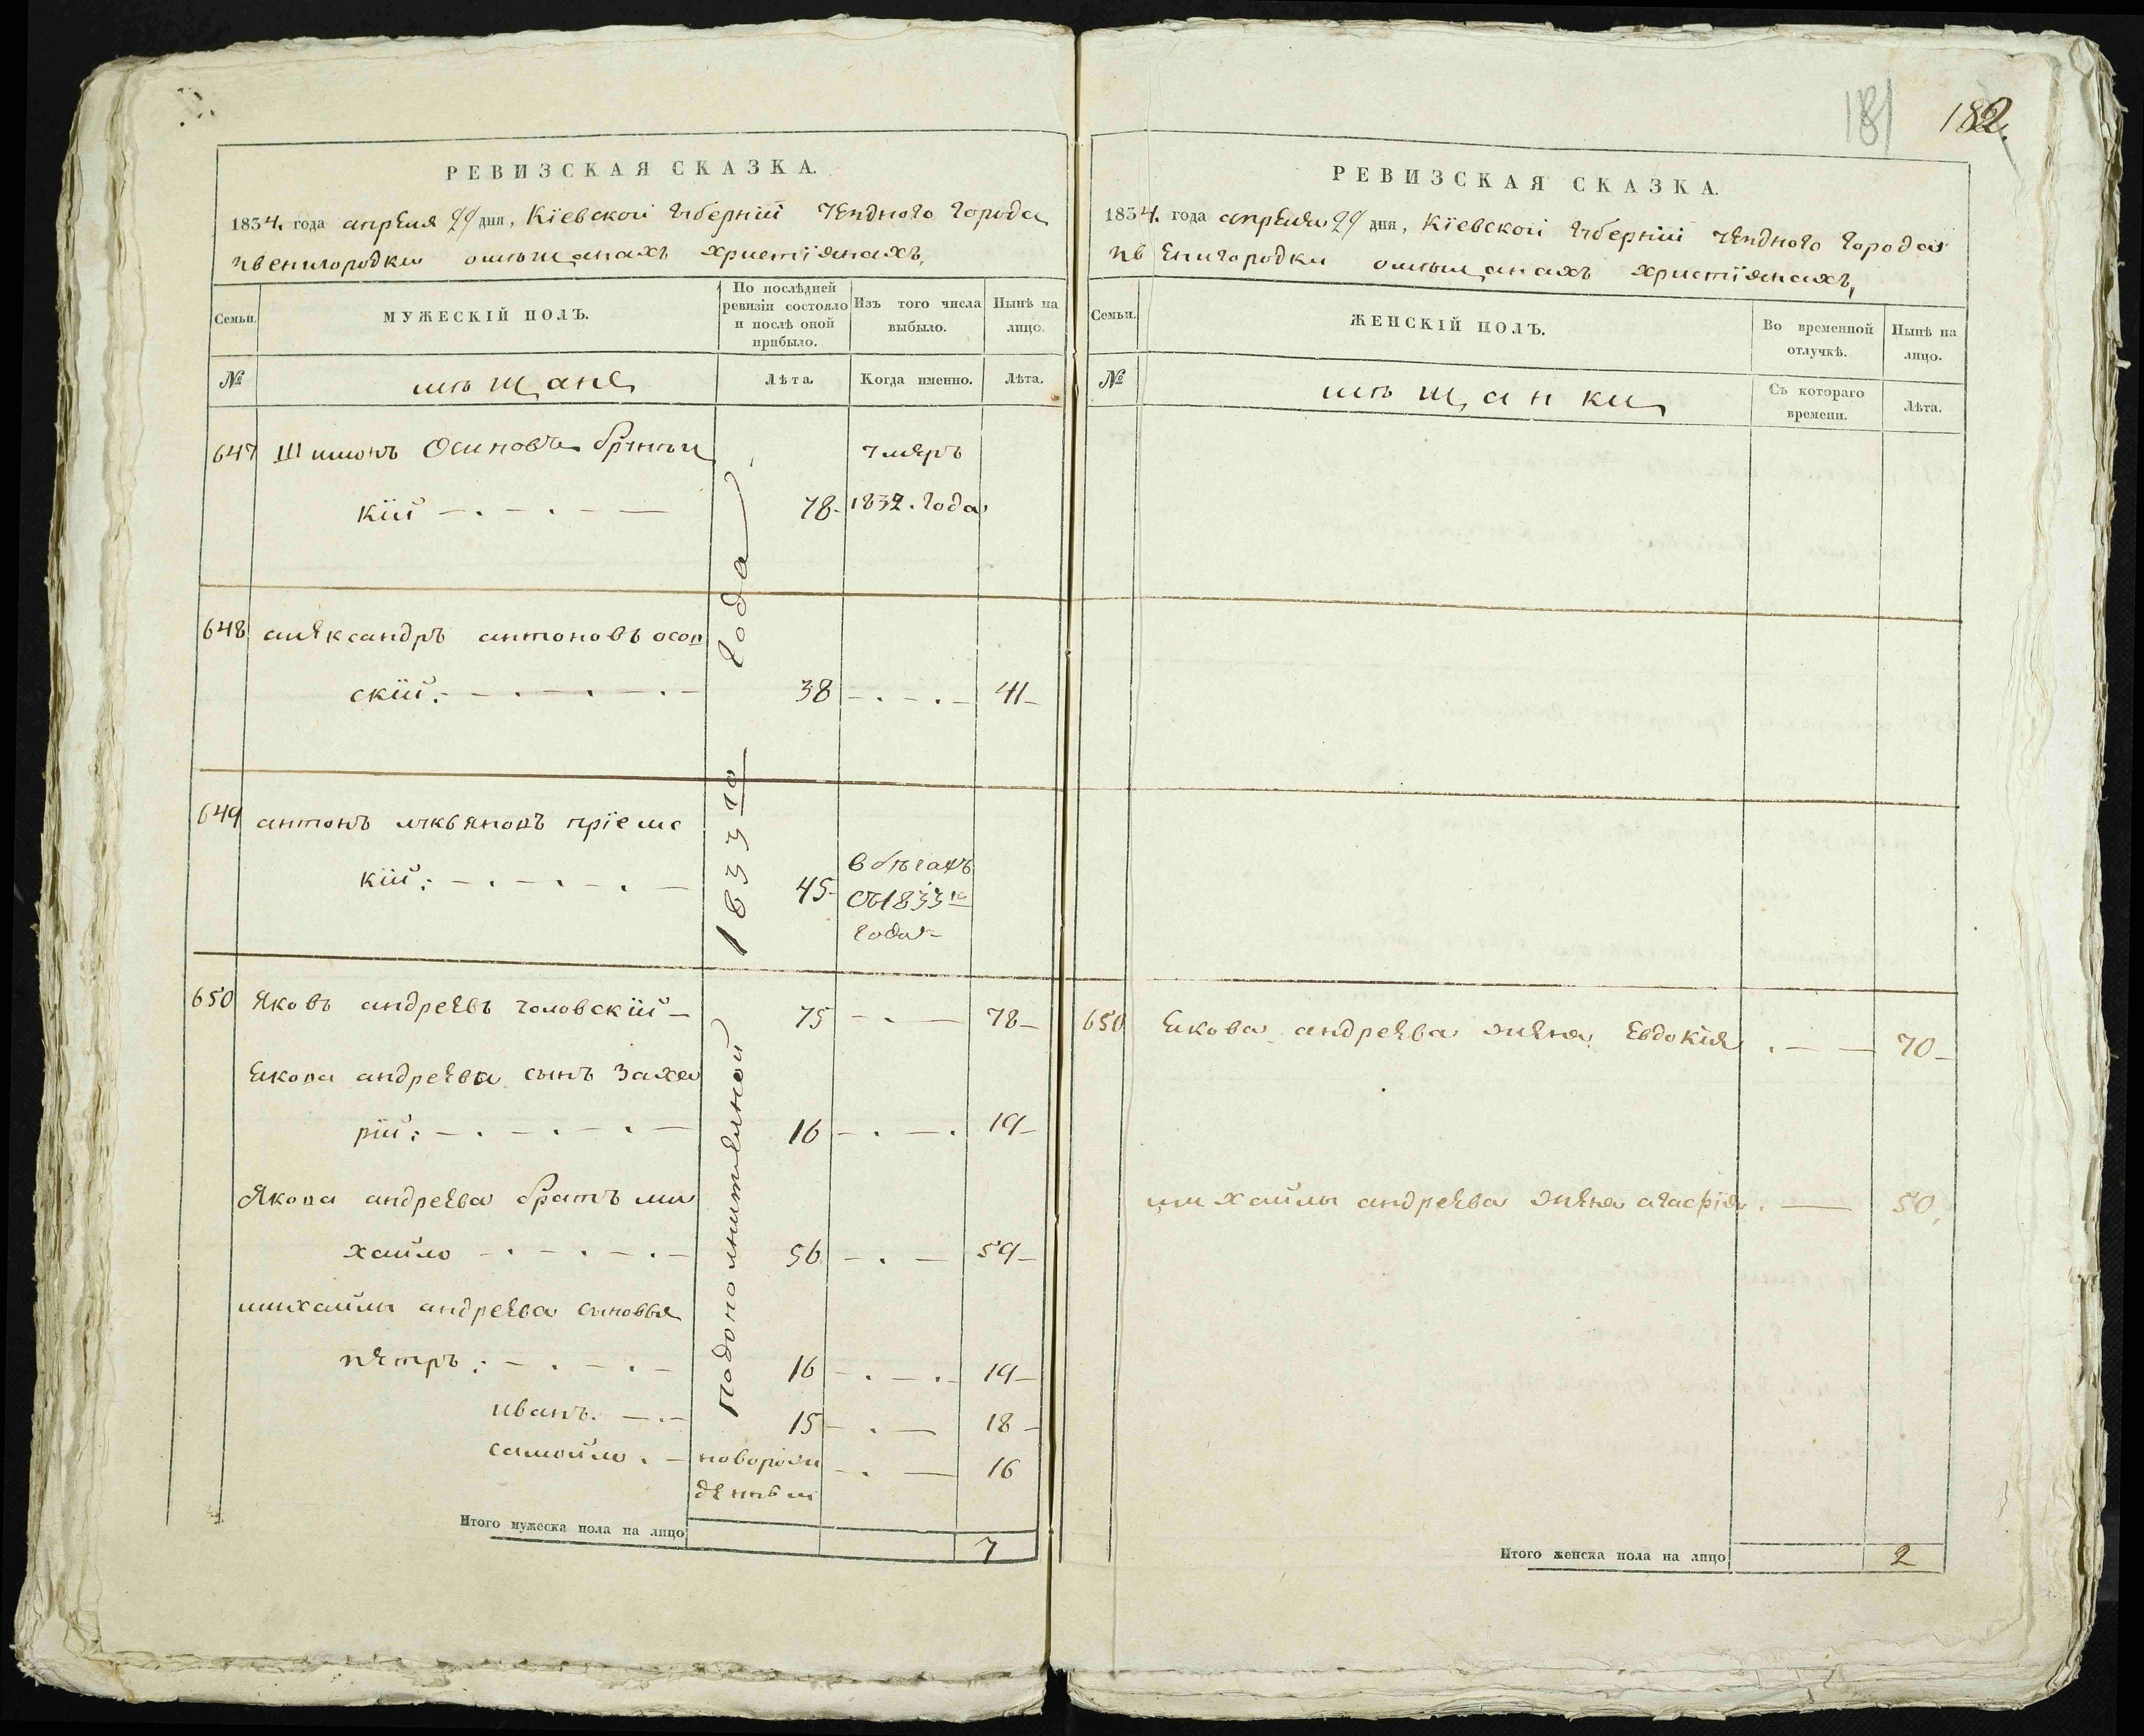 РЕВИЗСКАЯ СКАЗКА.
1834. года апреля 29 дня, Кіевской губерніи уезднаго города
звенигородки омѣщанахъ христіянахъ,
Семьи.
МУЖЕСКІЙ ПОЛЪ.
По послѣдней ревизіи состояло и послѣ оной прибыло.
Изъ того числа выбыло.
Нынѣ на лицо.
№
мѣщане
Лѣта.
Когда именно.
Лѣта.
647 Шимонъ Осиповъ
умеръ
кій 78 1832. года
648 александръ антоновъ
скій: 38 41
649 антонъ лукьяновъ пріемс
кій: 45 в бѣгахъ
съ 1833го
года
650 яковъ андреевъ чоловскій 75 78
якова андреева сынъ заха
рій: 16 19
якова андреева братъ ми
хайло 56 59
михайлы андреева сыновья
петръ: 16 19
иванъ. 15 18
самойло. новорож 16
денный
подополнителной 1833го года
Итого мужеска пола на лицо 7
181 182.
РЕВИЗСКАЯ СКАЗКА.
1834. года апреля 29 дня, Кіевской губерніи уезднаго города
звенигородки омѣщанахъ христіянахъ,
Семьи.
ЖЕНСКІЙ ПОЛЪ.
Во временной отлучкѣ.
Нынѣ на лицо.
№
мѣщанки
Съ котораго времени.
Лѣта.
650 якова андреева жена евдокія 70
михайлы андреева жена агафія 50,
Итого женска пола на лицо 2